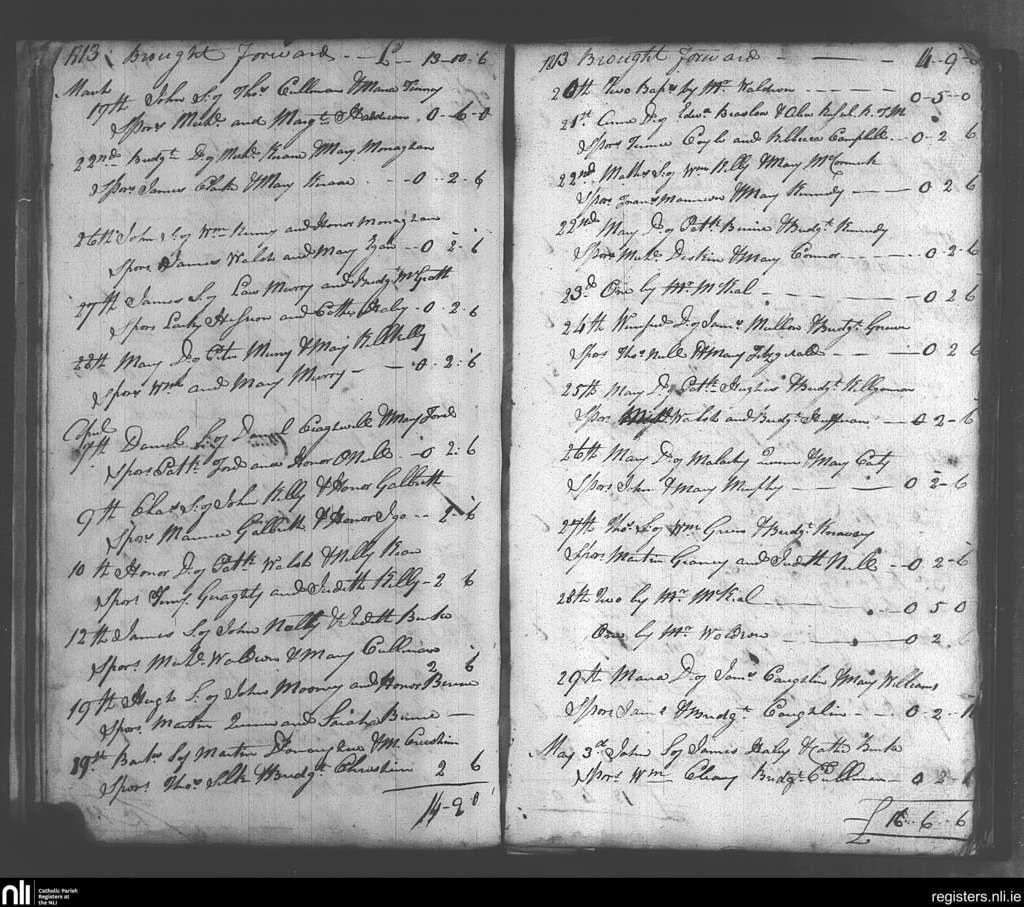 1813 Brought Forward - - £ - - 13-10-6
March
19th John S. of Thos. Cullinan & Maria Tierney
Spors. Michl. and Margt. - 0-6-0
22nd Bridgt. D. of Michl. Keane & Mary Monaghan
Spors. James Clark & Mary Keane - - 0-2-6
26th John S. of Wm. Kenny and Honor Monaghan
Spors. James Walsh and Mary Egan - - 0 2-6
27th James S. of Law Murry and Bridgt. McGrath
Spors and Cathe. Healy - 0-2-6
28th Mary D. of Peter Murry & Mary Killkelly
Spors Wm. and Mary Murry - - 0-2:6
April
7th Daniel S. of Daniel & Mary Ford
Spors. Patt. Ford and Honor ONeill - 0 2:6
9th Chas. S. of John Kelly & Honor Galbraith
Spors. Maurice Galbraith & Honor Igo - - 2-6
10th Honor D. of Patt. Walsh & Nelly Kean
Spors. Geraghty and Judith Kelly - 2 6
12th James S. of John Nally & Judith Burke
Spors. Michl. Waldron & Mary Cullinan
2 6
19th Hugh S. of John Mooney and Honor Birne
Spors. Martin Quinn and Sarah Birne -
19th S. of Martin & M.
Spors. Thos. Silk & Bridgt. Christian 2 6
14-9-0
1813 Brought Forward - - - 14-9-0
20th Two Baps. by Mr. Waldron - - - - 0-5-0
21st Anne D. of Edwd. Breslow &
Spors Coyle and Rebecca Campbell - 0-2 6
22nd S. of Wm. Kelly & Mary McCormick
Spors. Frans. Mannion & Mary Kennedy - - 0 2 6
22nd Mary D. of Patt. Birne & Bridgt. Kennedy
Spors Michl. Deskin & Mary Connor - - - 0 2-6
23d. One by Mr. McKeal - - - 0 2 6
24th Winifred D. of Jams. Mullon & Bridgt.
Spors Thos. Neill & Mary Fitzgerald - - 0 2 6
25th Mary D. of Patt. Hughes & Bridgt.
Spors. Walsh and Bridgt. Heffernan - 0 2-6
26th Mary D. of Malachy Quinn & Mary Caty
Spors John & Mary Murphy - - - 0 2-6
27th Thos. S. of Wm. & Bridgt.
Spors Martin and Judith Neill - 0 2-6
28th Two by Mr. McKeal - - - 0 5 0
One by Mr. Waldron - - - 0 2
29th Maria D. of Jams. Coughlin & Mary Williams
Spors Jams. & Bridgt. Coughlin - - 0-2-
May 3d. John S. of James Healy & Cathe. Burke
Spors. Wm. Cleary Bridgt. Cullinan - 0 2-6
£ 16-6-6
nli
Catholic Parish
Registers at
the NLI
registers.nli.ie